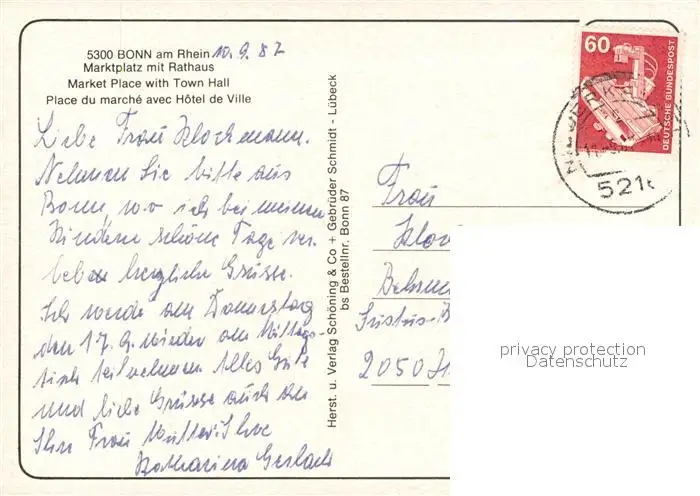 5300 BONN am Rhein 10.9.87
Marktplatz mit Rathaus
Market Place with Town Hall
Place du marché avec Hôtel de Ville
Liebe Frau Klochmann.
Nehmen Sie bitte aus
Bonn, wo ich bei meinen
Kindern schöne Tage ver-
lebe herzliche Grüsse.
Ich werde am Donnerstag
den 17.9. wieder am Mittags-
tisch teilnehmen Alles Gute
und liebe Grüsse auch an
Ihre Frau Mutter Ihre
Katharina Gerlach
Herst. u. Verlag Schöning & Co + Gebrüder Schmidt - Lübeck
bs Bestellnr. Bonn 87
60
DEUTSCHE BUNDESPOST
521
Frau
Klo
Justus-B
2050 H
privacy protection
Datenschutz